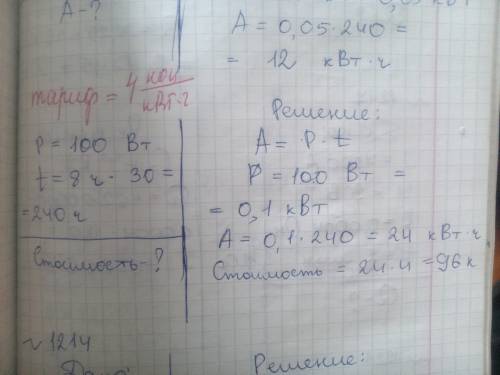 A-?
A = 0,05·240 =
= 12 кВт·ч
тариф = 4 коп/кВт·ч
P = 100 Вт
t = 8 ч · 30 =
= 240 ч
Стоимость-?
Решение:
A = P · t
P = 100 Вт =
= 0,1 кВт
A = 0,1·240 = 24 кВт·ч
Стоимость = 24·4 = 96 к
~ 1214
Дано:
Решение: